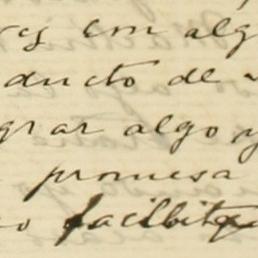 res con alg
ducto de
grar algo y
promesa
o facilite